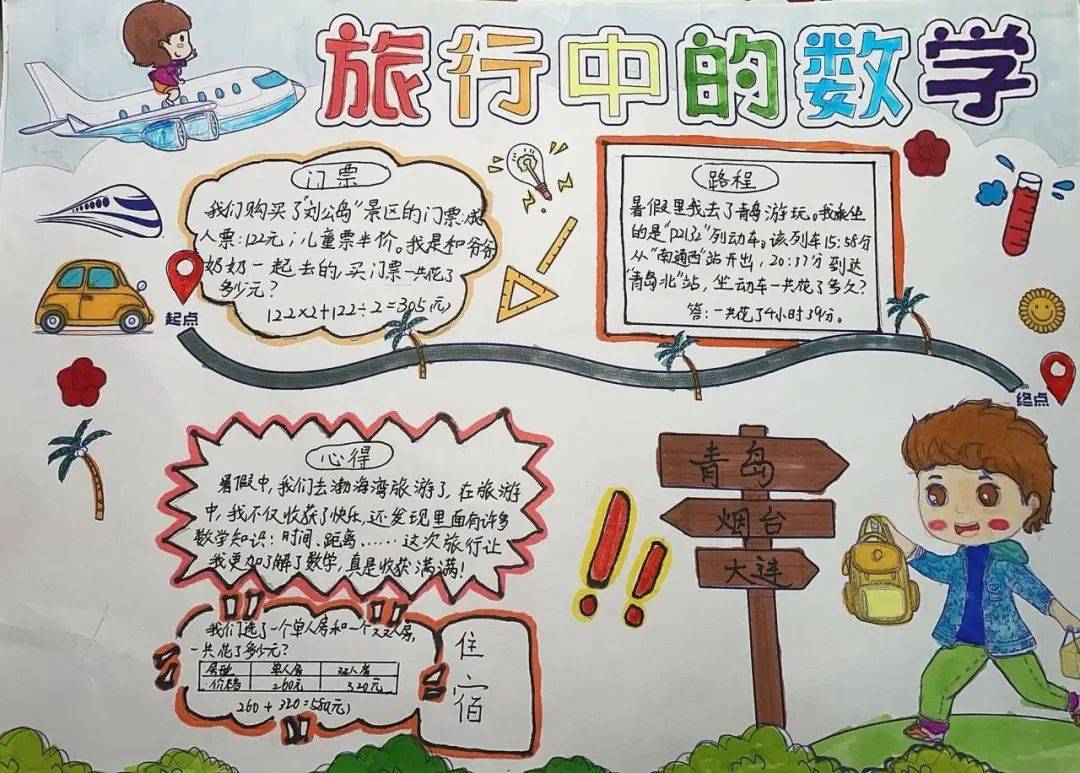 旅行中的数学
门票
我们购买了"刘公岛"景区的门票,成
人票:122元;儿童票半价。我是和爷爷
奶奶一起去的,买门票一共花了
多少元?
122×2+122÷2=305元
路程
暑假里我去了青岛游玩。我乘坐
的是"D2132"列动车。该列车15:58分
从"南通西"站开出,20:37分到达
"青岛北"站,坐动车一共花了多久?
答:一共花了4小时39分。
起点
终点
心得
暑假中,我们去渤海湾旅游了,在旅游
中,我不仅收获了快乐,还发现里面有许多
数学知识:时间、距离……这次旅行让
我更加了解了数学,真是收获满满!
青岛
烟台
大连
我们选了一个单人房和一个双人房,
一共花了多少元?
房型 单人房 双人房
价格 260元 320元
260+320=580(元)
住
宿